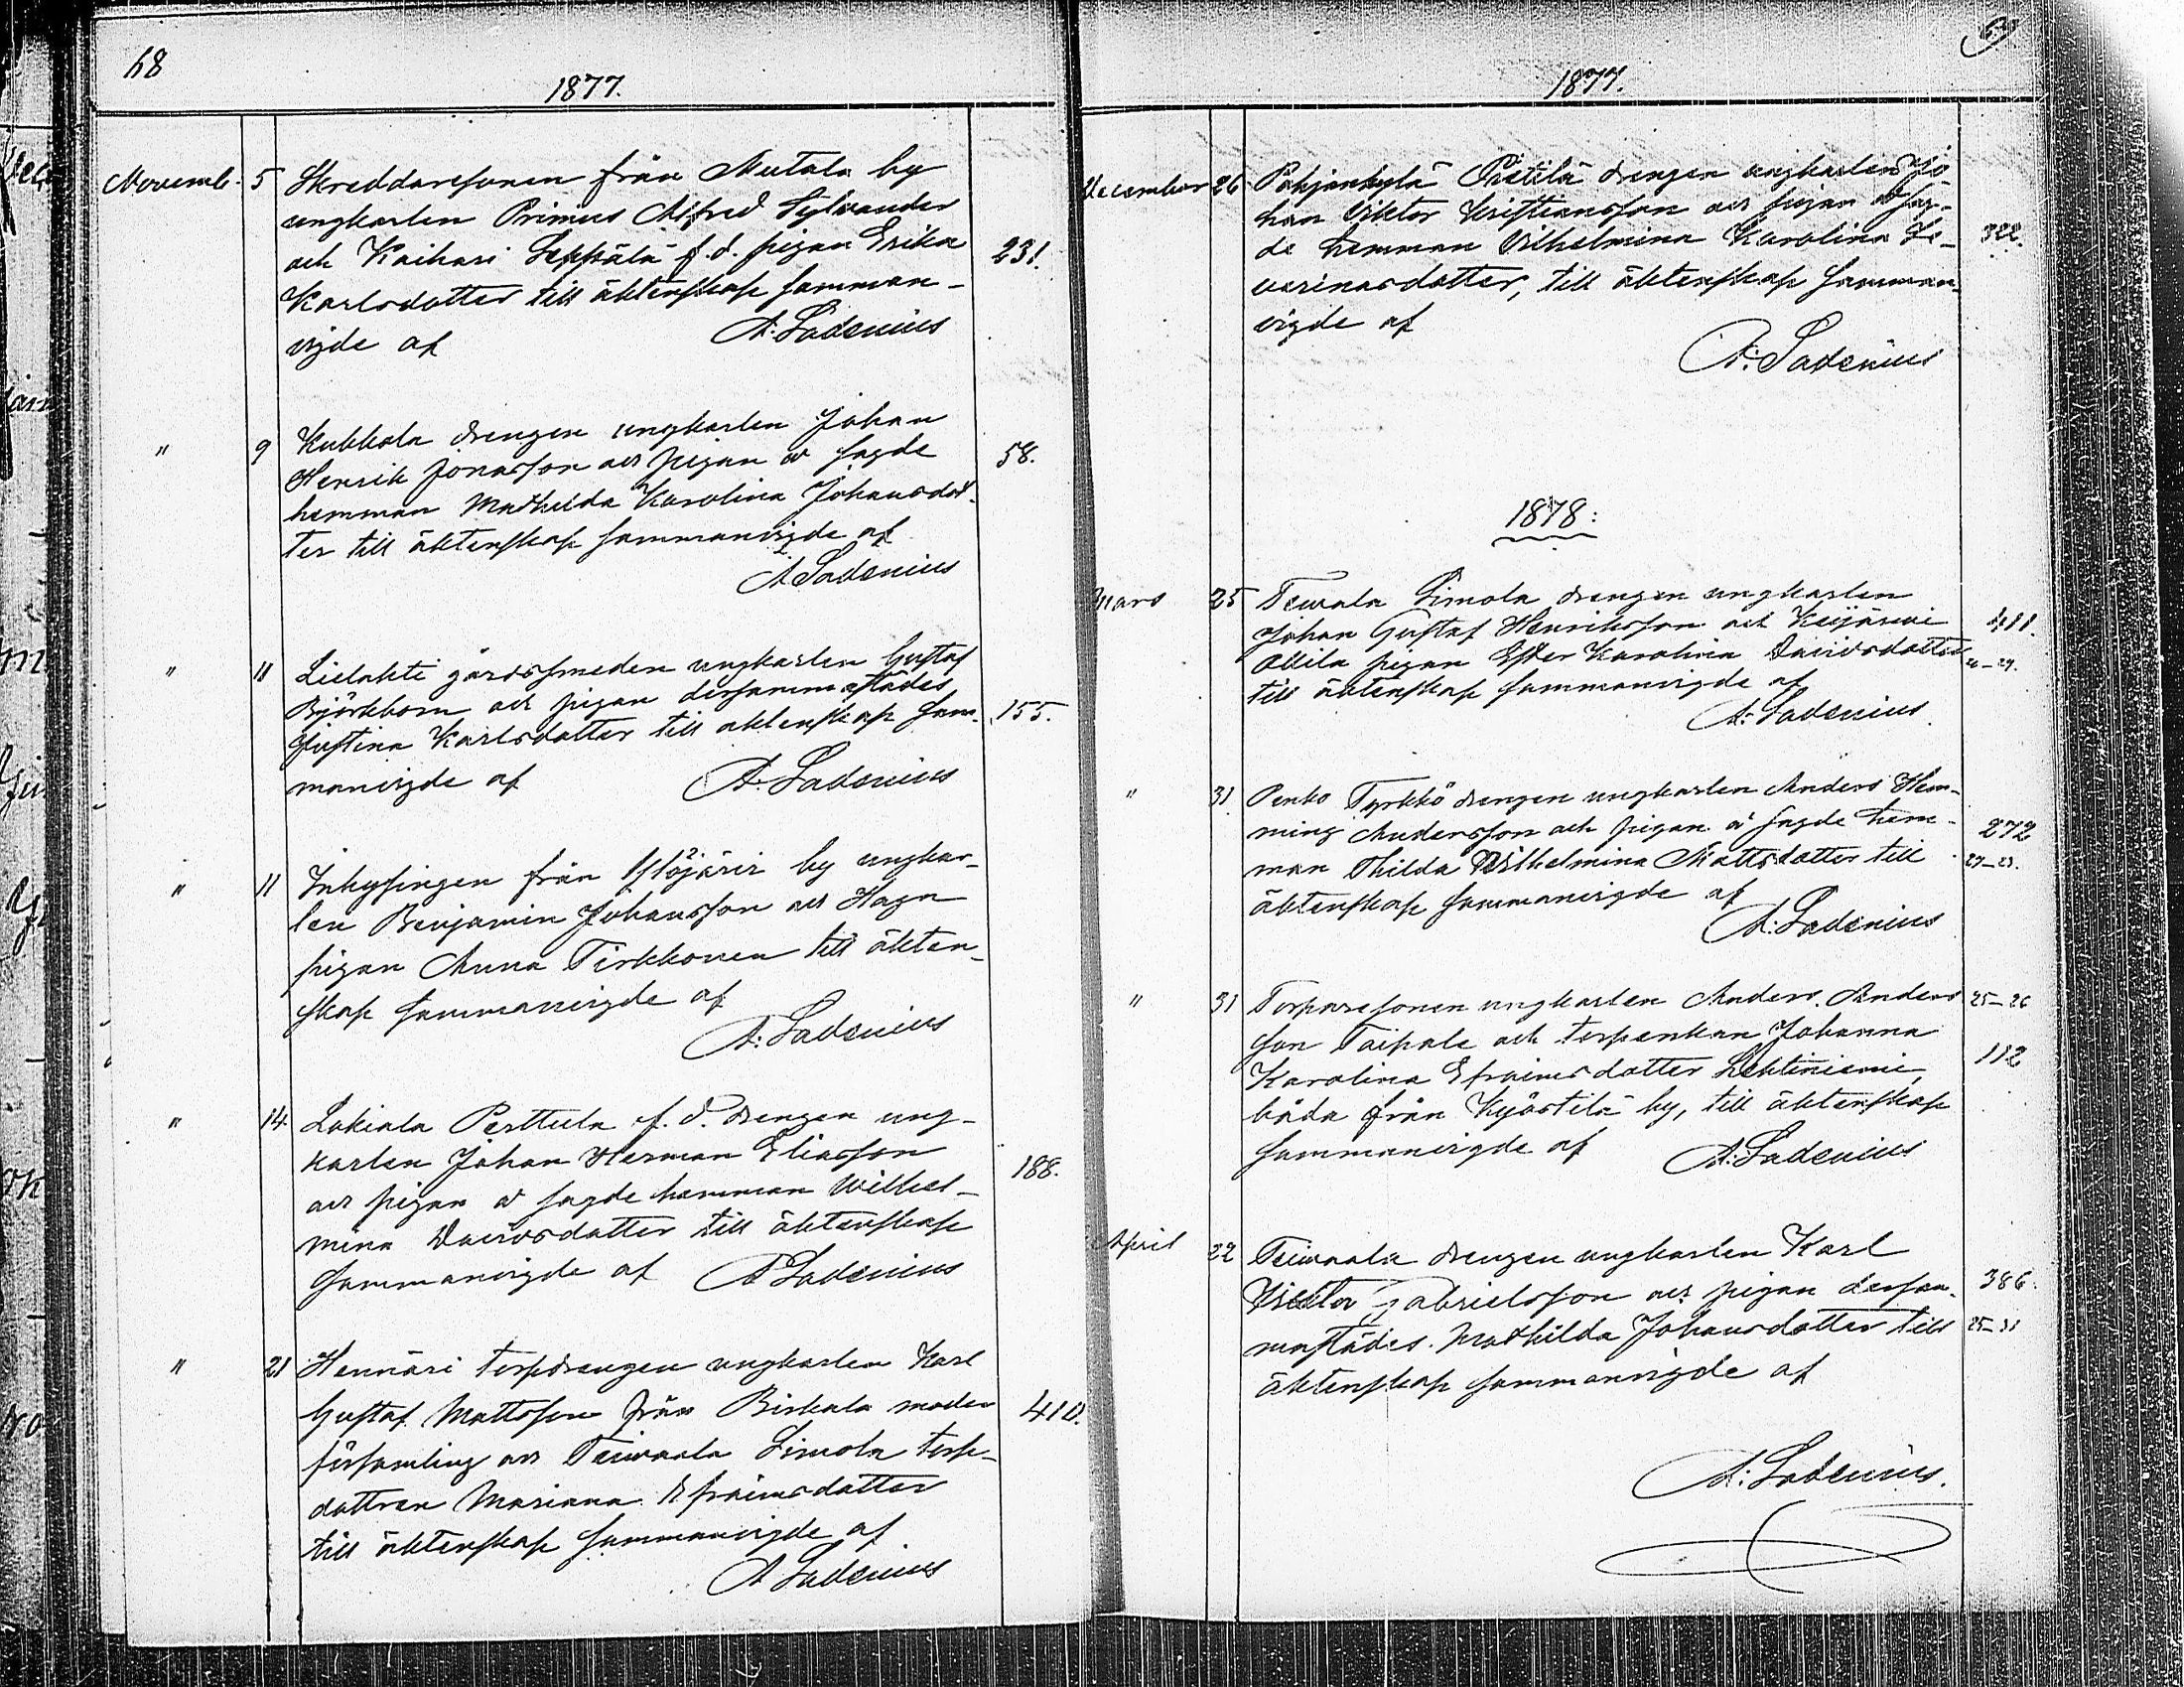 68
1877.
Novemb. 5 Skreddaresonen från Mutala by
ungkarlen Primus Alfred Sylvander
och Kaihari Seppälä f.d. pigan Erika 231.
Karlsdotter till äktenskap samman-
vigde af A. Ladenius
" 9 Kukkola drengen ungkarlen Johan
Henrik Jonasson och pigan å sagde 58.
hemman Mathilda Karolina Johansdot-
ter till äktenskap sammanvigde af
A. Ladenius
" 11 Lielahti gårdssmeden ungkarlen Gustaf
Björkbom och pigan dersammastädes
Justina Karlsdotter till äktenskap sam- 155.
manvigde af A. Ladenius
" 11 Inhysingen från by ungkar-
len Benjamin Johansson och Haga
pigan Anna Pirkkonen till äkten-
skap sammanvigde af
A. Ladenius
" 14. Lakiala Perttula f.d. drengen ung-
karlen Johan Herman Eliasson
och pigan å sagde hemman Wilhel- 188.
mina Davidsdotter till äktenskap
sammanvigde af A Ladenius
" 21 Hennäri torpdrengen ungkarlen Karl
Gustaf Mattsson från Birkala moder 410.
församling och Teivaala Simola torp-
dottren Mariana Efraimsdotter
till äktenskap sammanvigde af
A Ladenius
69
1877.
December 26 Pohjankylä drengen ungkarlen Jo-
han Viktor Kristiansson och pigan å sag-
de hemman Vilhelmina Karolina Se- 322.
verinasdotter, till äktenskap samman-
vigde af
A: Ladenius
1878:
Mars 25 Teivala Simola drengen ungkarlen
Johan Gustaf Henriksson och Keijärvi 411.
Ollila pigan Ester Karolina Davidsdotter
till äktenskap sammanvigde af
A: Ladenius
" 31 Penko Tyrkkö drengen ungkarlen Anders Hem-
ming Andersson och pigan å sagde hem- 272
man Thilda Wilhelmina Mattsdotter till 27-23.
äktenskap sammanvigde af
A: Ladenius
" 31 Torparesonen ungkarlen Anders Anders 25-26
son Taipale och torpenkan Johanna
Karolina Efraimsdotter Lehtiniemi, 112
båda från Kyöstilä by, till äktenskap
sammanvigde af A: Ladenius
April 22 Teivaala drengen ungkarlen Karl
Viktor Gabrielsson och pigan dersam- 386.
mastädes Mathilda Johansdotter till 25-31
äktenskap sammanvigde af
A: Ladenius.